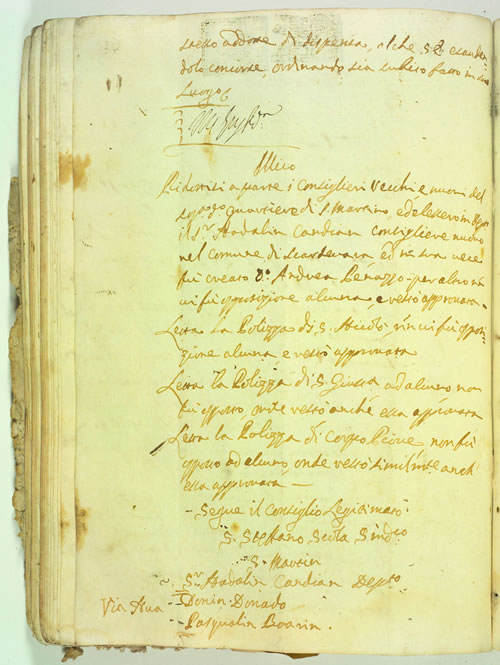 stesso addosse di dispensa, al che S.E. esauden
dolo concorse, ordinando sia subito fatto in suo
Luogo
Illico
Ridottisi a parte i Consiglieri Vecchi e nuovi del
quartiere di S. Martino, ed elessero in
il Sr Nadalin Candian Consigliere nuovo
nel Comune di Scardevara, ed in sua vece
fù creato Andrea Penazzo per altro
vi fù opposizione alcuna, e restò approvata
Letta la Polizza di S. Nicolò, vi fù opposi
zione alcuna e restò approvata
Letta la Polizza di S. Giusta ad alcuno non
fù opposto, onde restò anche essa approvata
Letta la Polizza di Corpo Pieve non fù
opposto ad alcuno, onde restò simil.nte anch
essa approvata
Segue il Consiglio Legitimato
S. Steffano Scola Sind.co
S. Martin
Sr Nadalin Candian Dep.to
Donin Donado
Via Aua
Pasqualin Boarin.